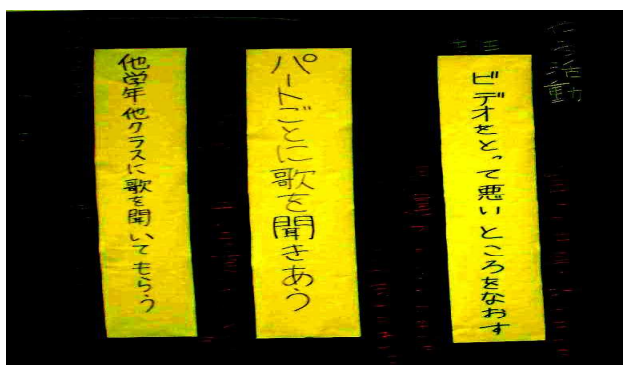 ビデオをとって悪いところをなおす
パートごとに歌を聞きあう
他学年他クラスに歌を聞いてもらう